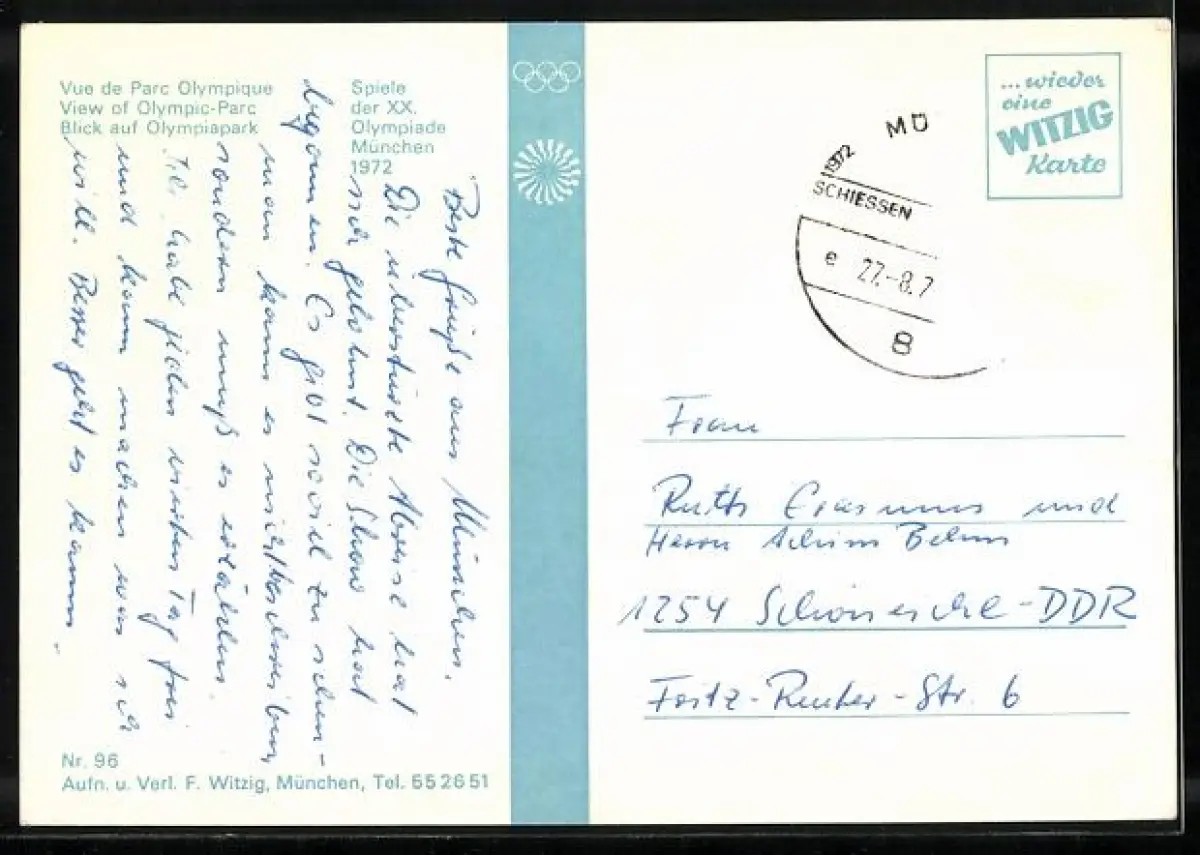 Vue de Parc Olympique
View of Olympic-Parc
Blick auf Olympiapark
Spiele
der XX.
Olympiade
München
1972
Beste Grüße aus München.
Die überstürzte Abreise hat
sich gelohnt. Die Show hat
begonnen. Es gibt soviel zu sehen -
man kann es nicht beschreiben,
sondern muß es erzählen.
habe jeden vierten Tag frei
und kann machen was ich
will. Besser geht es kaum.
Nr. 96
Aufn. u. Verl. F. Witzig, München, Tel. 55 26 51
...wieder
eine
WITZIG
Karte
MÜ
1972
SCHIESSEN
e 27.-8.7
8
Frau
Ruth Erasmus und
Herrn Achim Behm
1254 Schöneiche-DDR
Fritz-Reuter-Str. 6